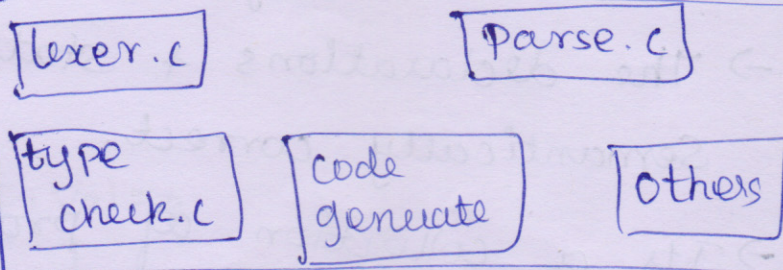 lexer.c
Parse.c
type
check.c
code
generate
others